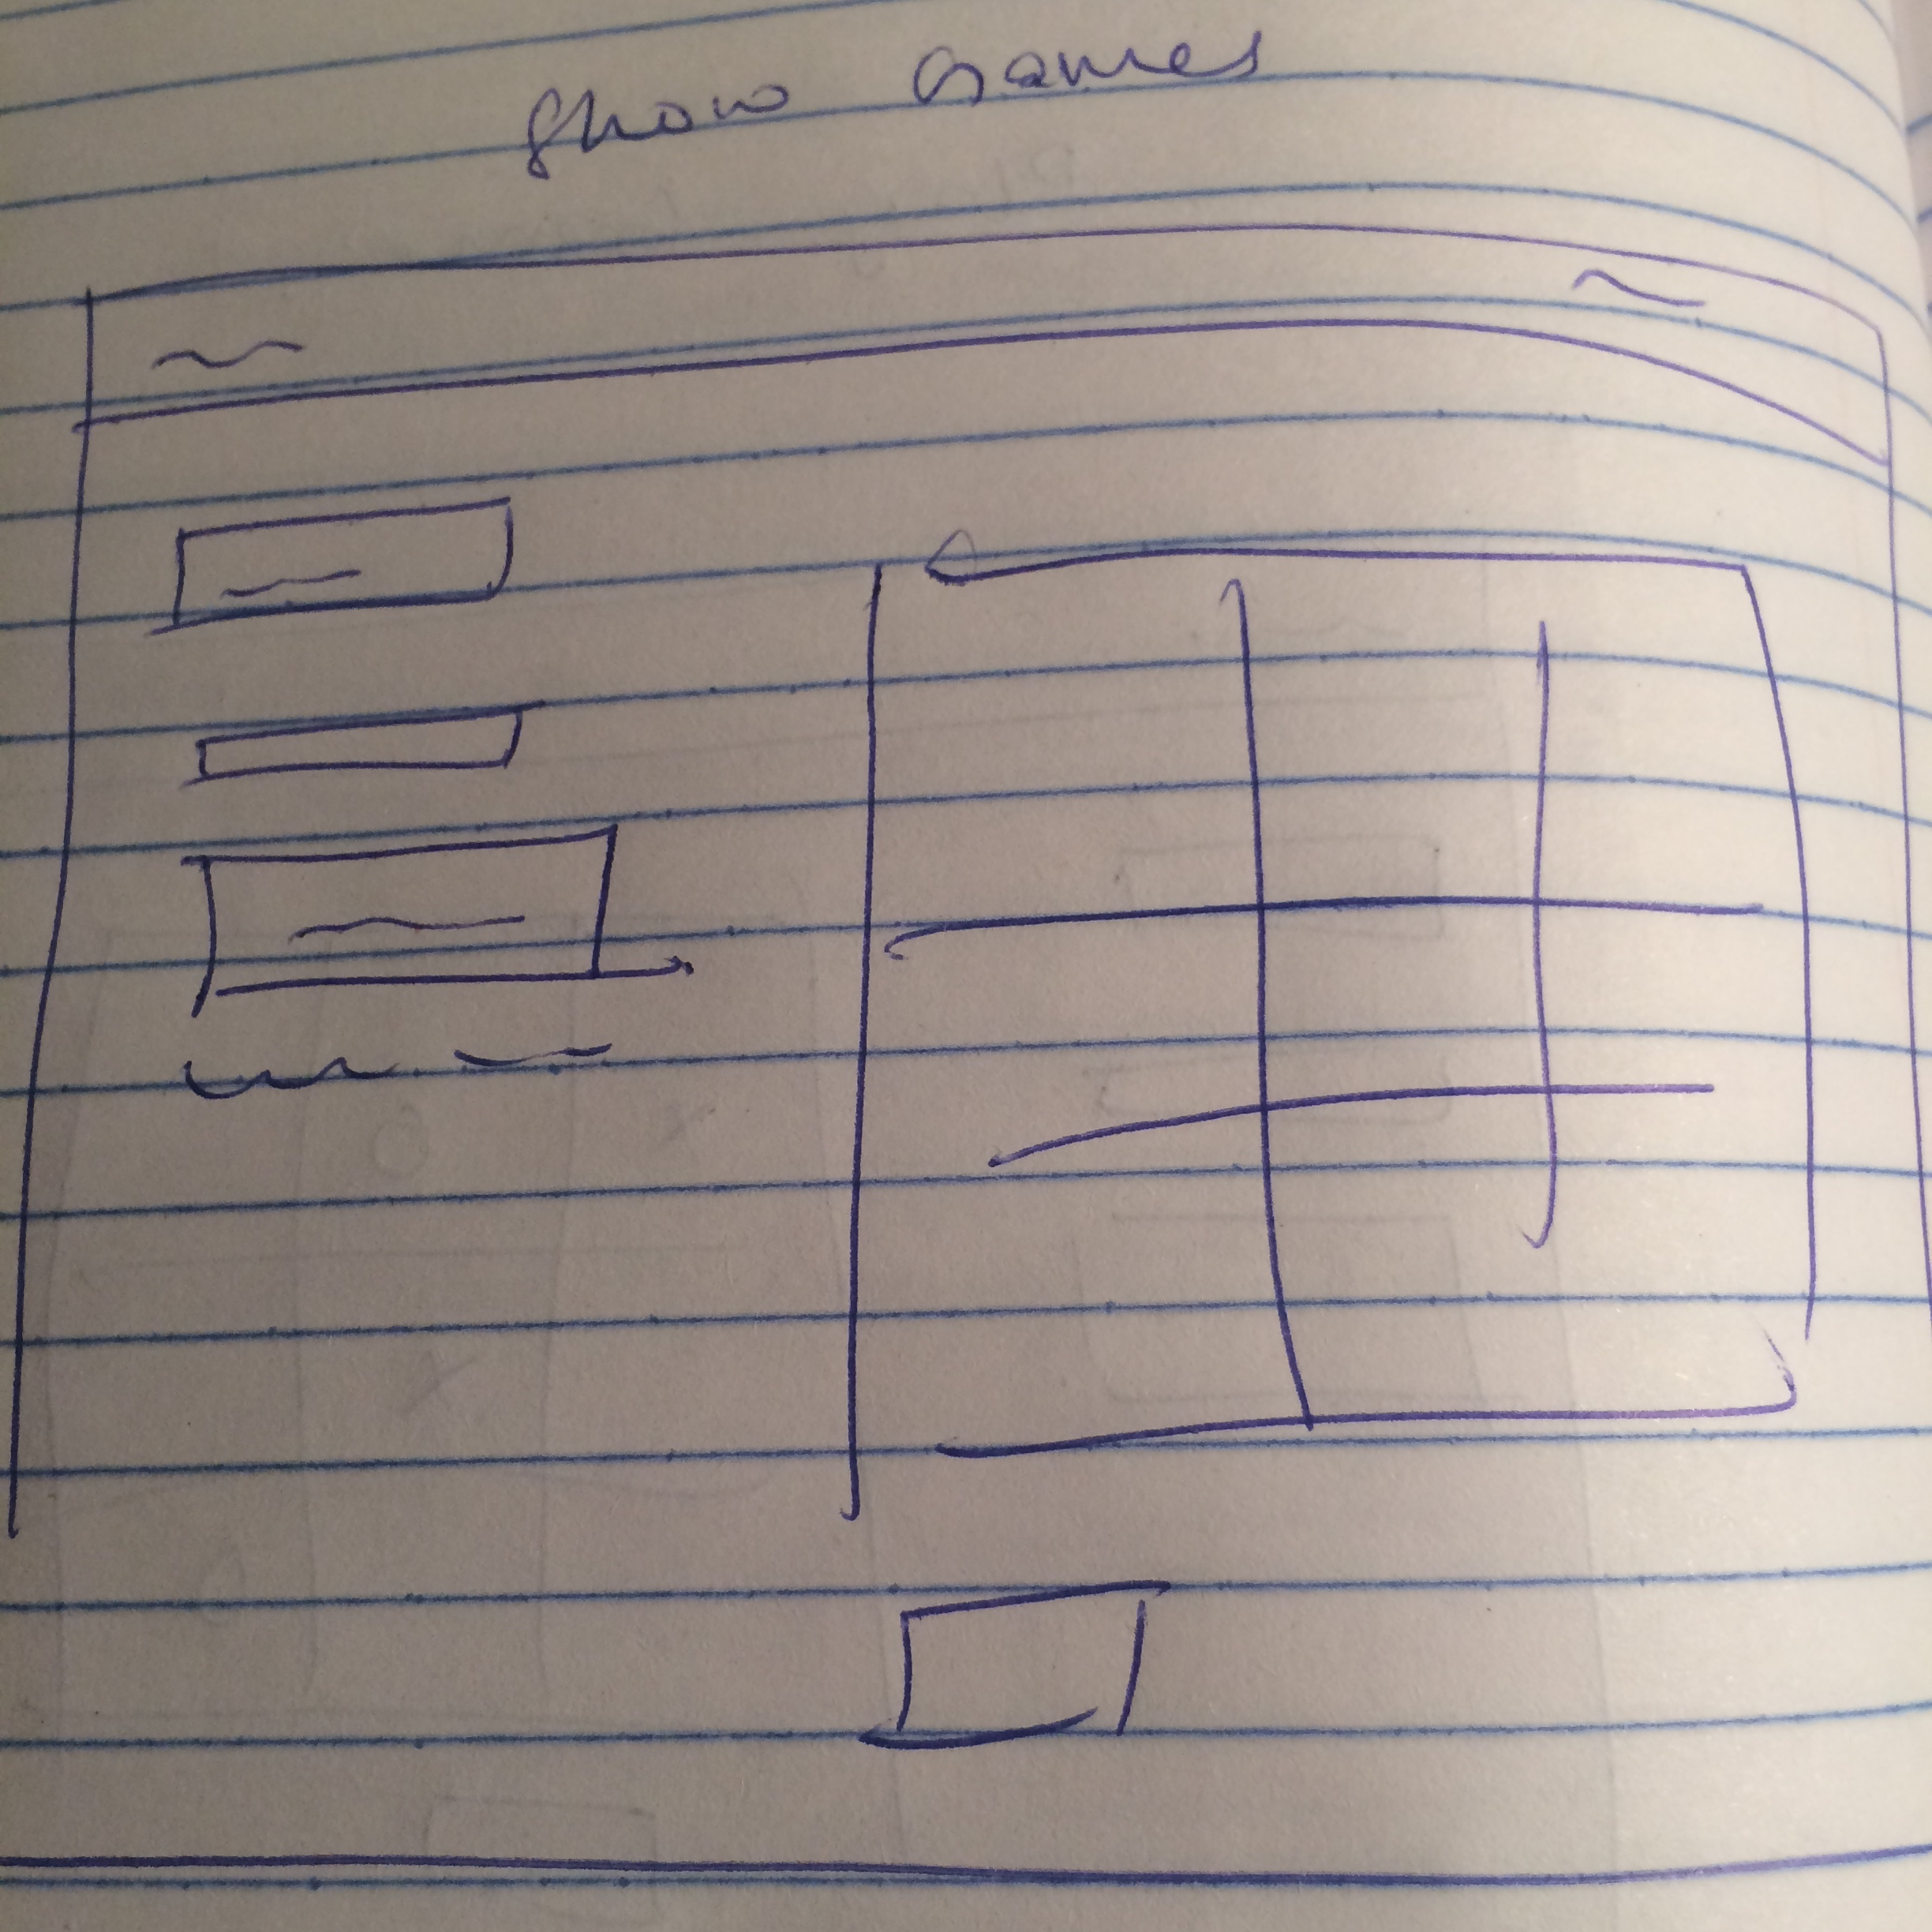 Show Games